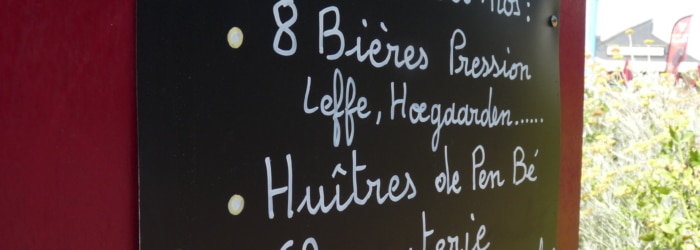 nos :
• 8 Bières Pression
Leffe, Hoegaarden......
• Huîtres de Pen Bé